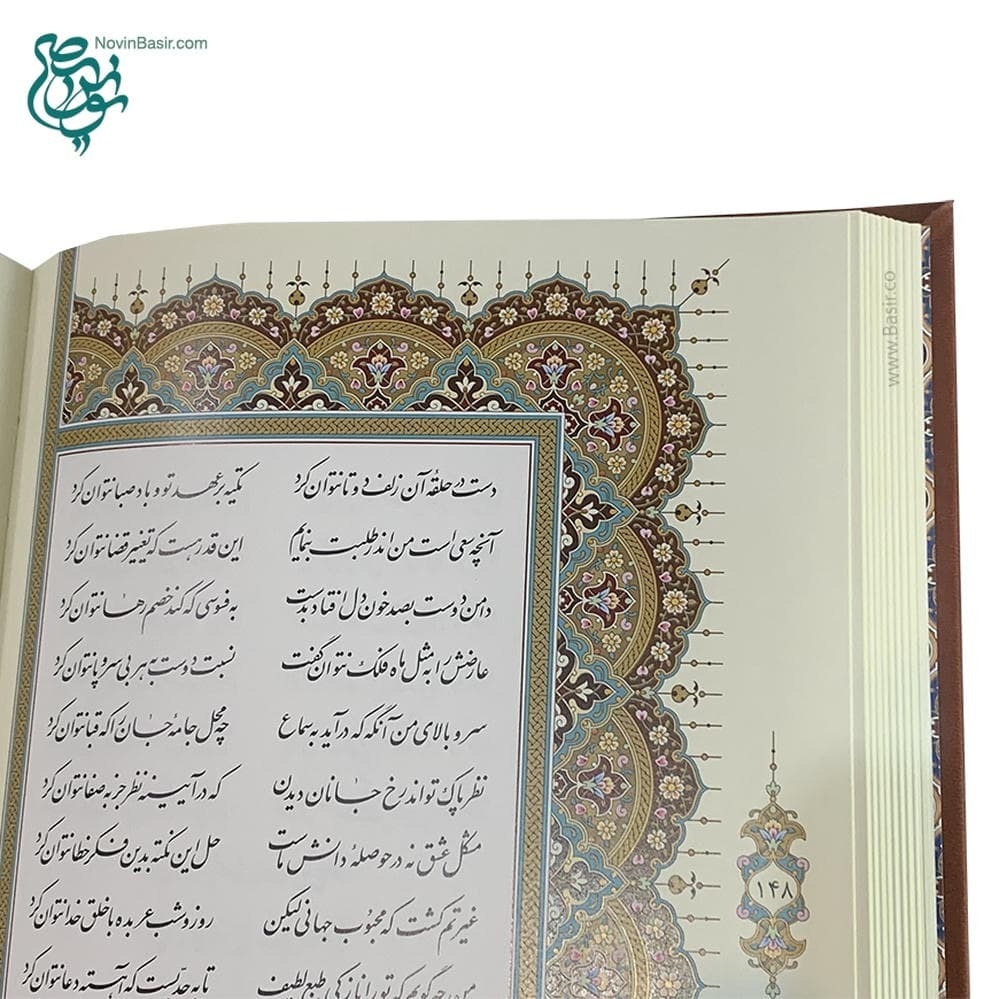 NovinBasir.com
نوین بصیر
www.Basir.co
دست در حلقهٔ آن زلف دوتا نتوان کرد تکیه بر عهد تو و باد صبا نتوان کرد
آنچه سعی است من اندر طلبت بنمایم این قدر هست که تغییر قضا نتوان کرد
دامن دوست بصد خون دل افتاد بدست به فسوسی که کند خصم رها نتوان کرد
عارضش را به مثل ماه فلک نتوان گفت نسبت دوست به هر بی سر و پا نتوان کرد
سرو بالای من آنگه که درآید به سماع چه محل جامهٔ جان را که قبا نتوان کرد
نظر پاک تواند رخ جانان دیدن که در آیینه نظر جز به صفا نتوان کرد
مشکل عشق نه در حوصلهٔ دانش ماست حل این نکته بدین فکر خطا نتوان کرد
غیرتم کشت که محبوب جهانی لیکن روز و شب عربده با خلق خدا نتوان کرد
من چه گویم که تو را نازکی طبع لطیف تا به حدیست که آهسته دعا نتوان کرد
۱۴۸